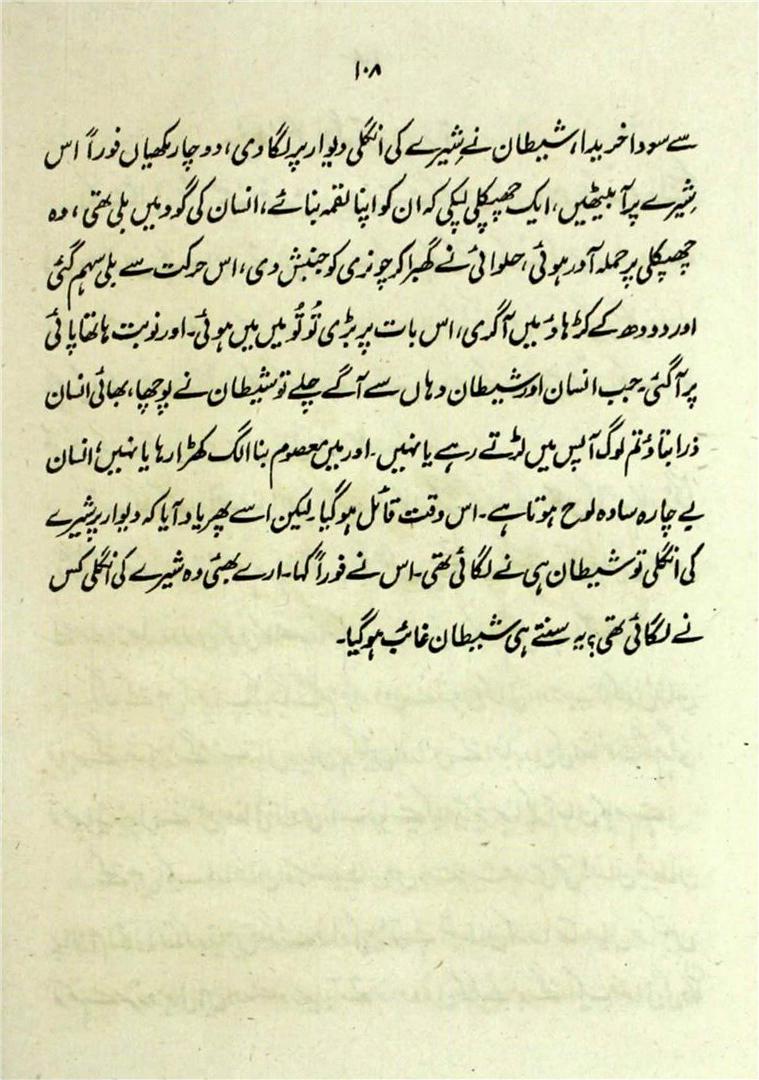 ۱۰۸
سے سودا خریدا، شیطان نے شیرے کی انگلی دیوار پر لگا دی، دو چار مکھیاں فوراً اس
شیرے پر آ بیٹھیں، ایک چھپکلی لپکی کہ ان کو اپنا لقمہ بنائے، انسان کی گود میں بلی تھی، وہ
چھپکلی پر حملہ آور ہوئی، حلوائی نے گھبرا کر چونری کو جنبش دی، اس حرکت سے بلی سہم گئی
اور دودھ کے کڑھاؤ میں آ گری، اس بات پر بڑی تُو تُو میں میں ہوئی۔ اور نوبت ہاتھا پائی
پر آ گئی۔ جب انسان اور شیطان وہاں سے آگے چلے تو شیطان نے پوچھا، بھائی انسان
ذرا بتاؤ تم لوگ آپس میں لڑتے رہے یا نہیں۔ اور میں معصوم بنا الگ کھڑا رہا یا نہیں؛ انسان
بے چارہ سادہ لوح ہوتا ہے۔ اس وقت قائل ہو گیا۔ لیکن اسے پھر یاد آیا کہ دیوار پر شیرے
کی انگلی تو شیطان ہی نے لگائی تھی۔ اس نے فوراً کہا۔ ارے بھئی وہ شیرے کی انگلی کس
نے لگائی تھی؟ یہ سنتے ہی شیطان غائب ہو گیا۔